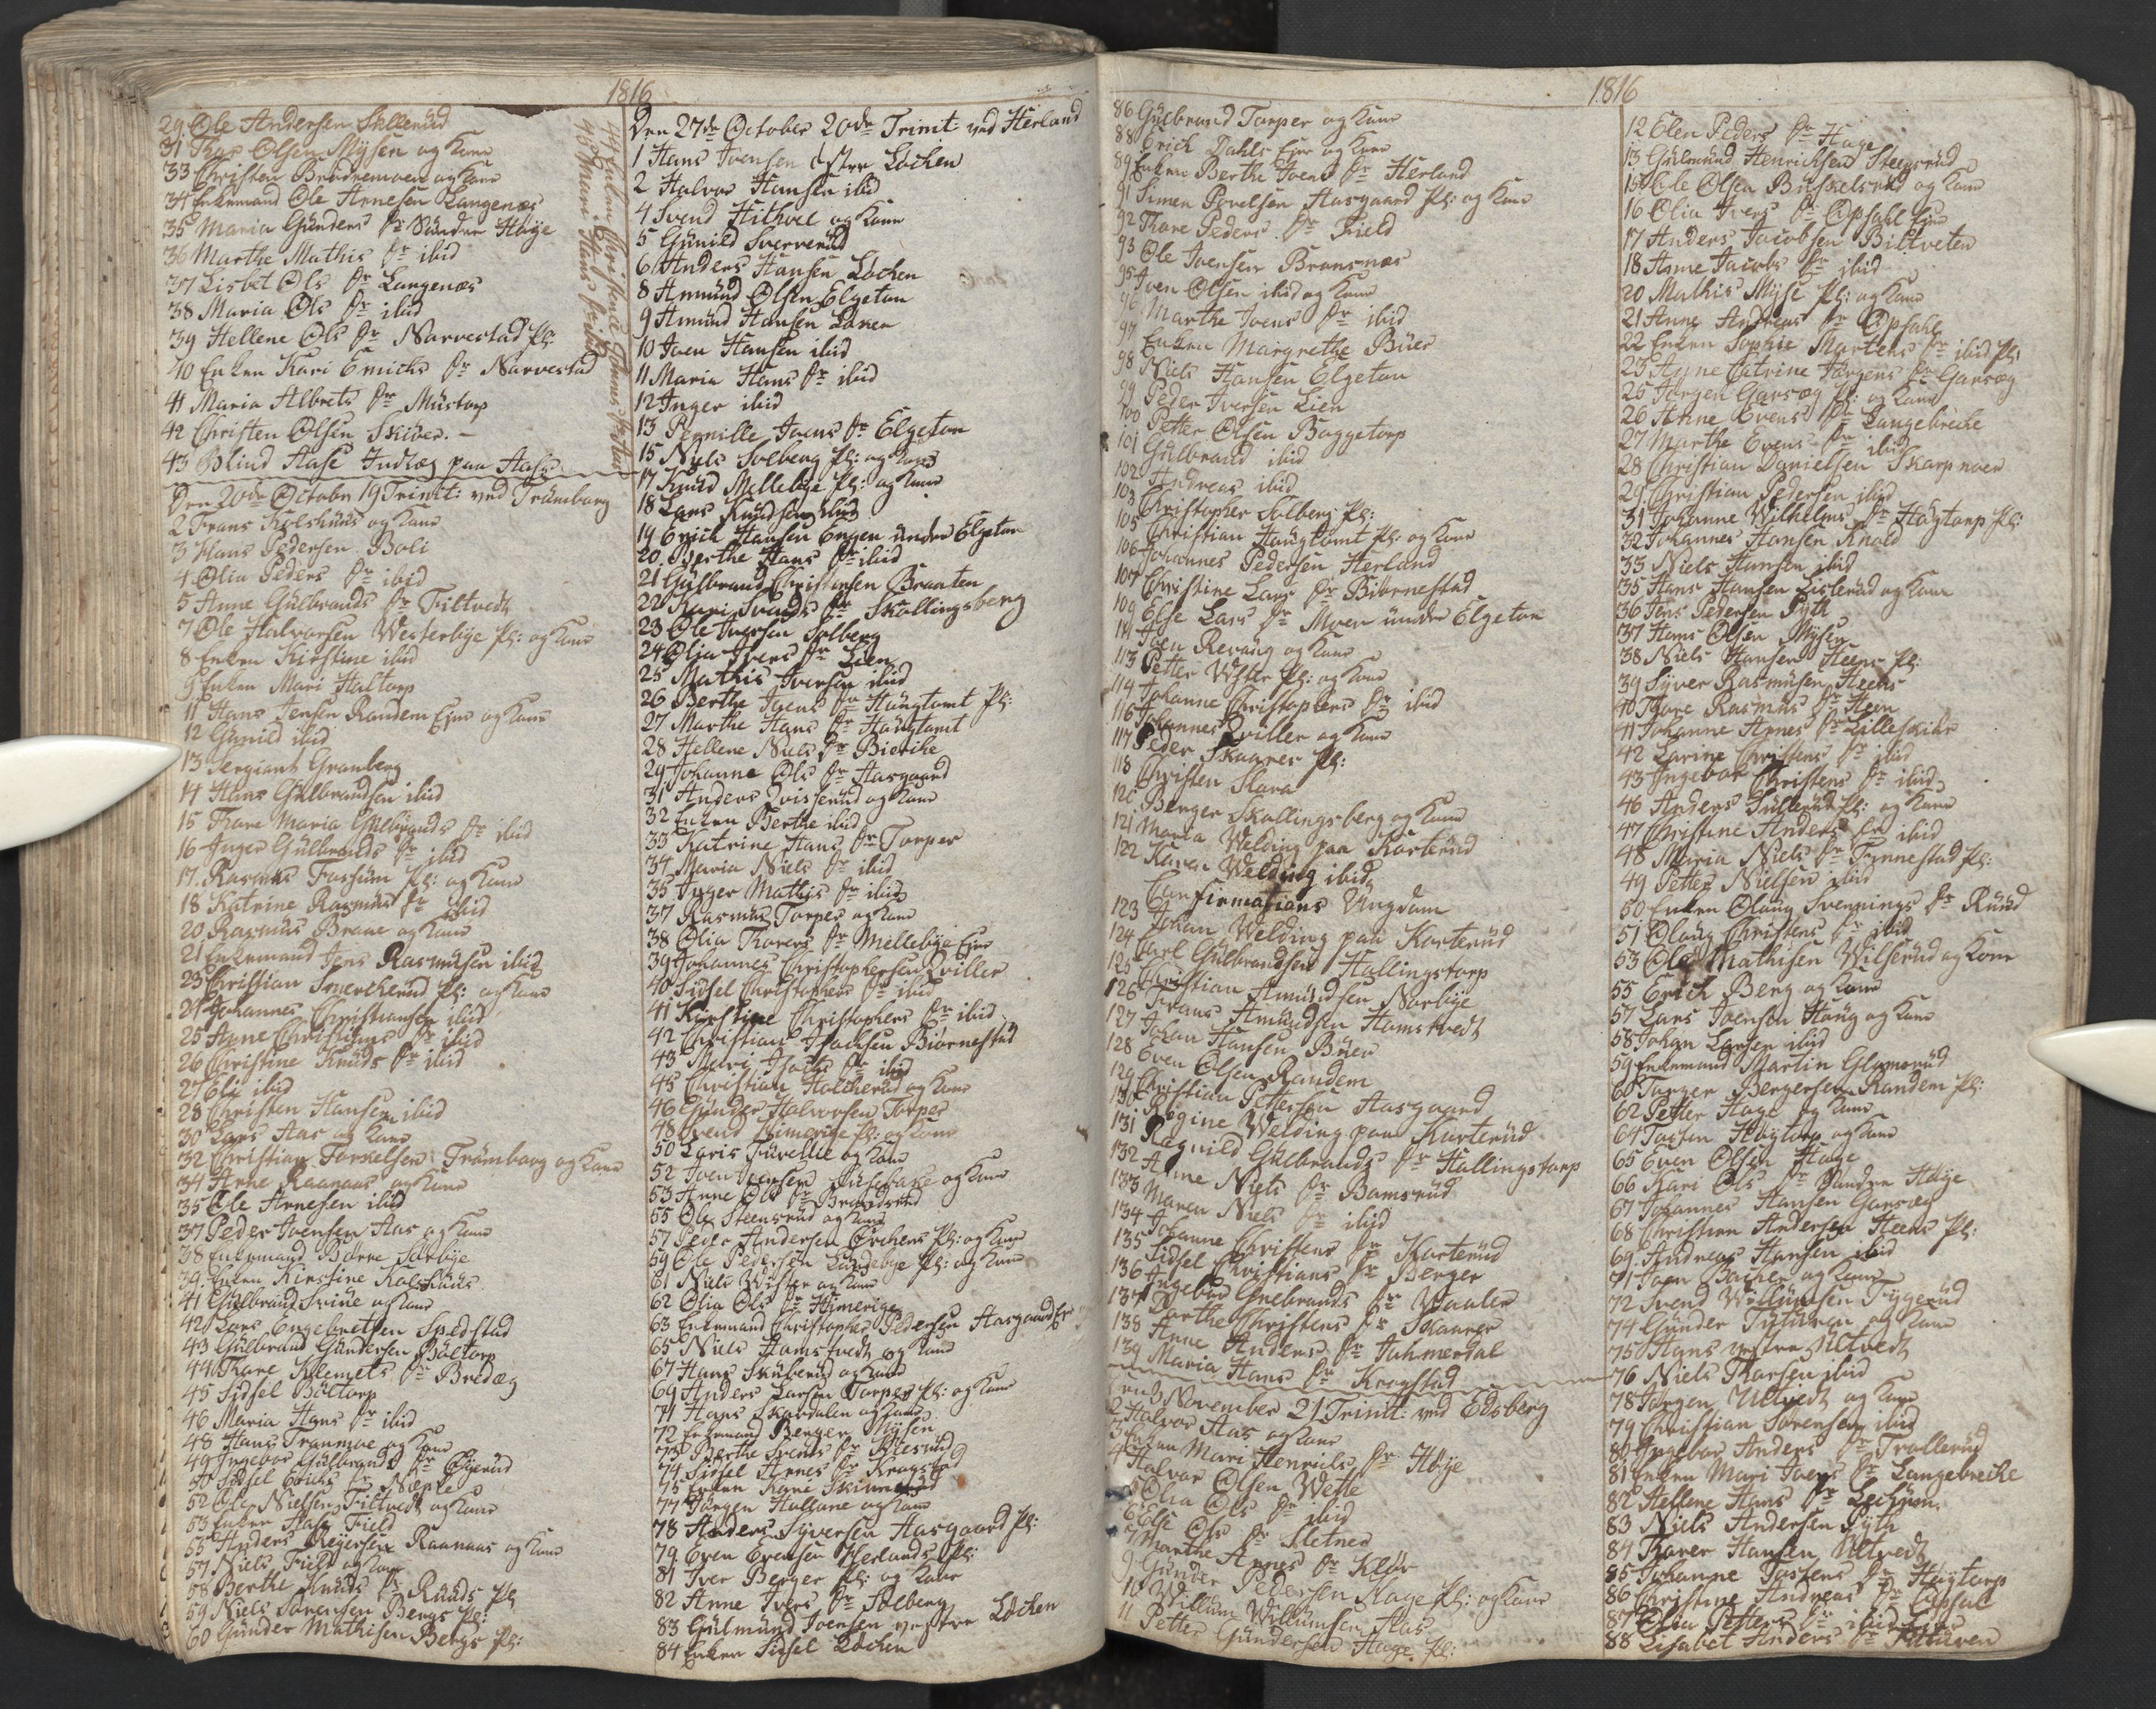 1816
29 Ole Andersen Skllerud
31 Thor Olsen Mysen og Kone
33 Christen Brødremoen og Kone
34 Enkemand Ole Arnesen Langenæs
35 Maria Gunders Dr Søndre Høije
36 Marthe Mathis Dr ibid
37 Lisbet Ols Dr Langenæs
38 Maria Ols Dr ibid
39 Hellene Ols Dr Narvestad Pl:
40 Enken Kari Emichs Dr Narvestad
41 Maria Albrets Dr Mustorp
42 Christen Olsen Skiber. -
43 Blind Aase Indlæg paa Aase
44 Enken Christence
45 Mari Hans Dr ibid
Den 20de October 19 Trinit: ved Trømborg
2 Frans Kolshuus og Kone
3 Hans Pedersen Boli
4 Olia Peders Dr ibid
5 Anne Gulbrands Dr Tiltvedt
7 Ole Halvorsen Westerbye Pl: og Kone
8 Enken Kirstine ibid
9 Enken Mari Haltorp
11 Hans Jensen Randem Eier og Kone
12 Gunild ibid
13 Sergiant Granberg
14 Hans Gulbrandsen ibid
15 Thore Maria Gulbrands Dr ibid
16 Inger Gulbrands Dr ibid
17. Rasmus Fossum Pl: og Kone
18 Katrine Rasmus Dr ibid
20 Rasmus Braae og Kone
21 Enkemand Jens Rasmusen ibid
23 Christian Smerckerud Pl: og Kone
24 Johannes Christiansen ibid
25 Anne Christians Dr ibid
26 Christine Knuds Dr ibid
27 Eli ibid
28 Christen Hansen ibid
30 Lars Aas og Kone
32 Christian Torkelsen Trømborg og Kone
34 Arne Raanaas og Kone
35 Ole Arnesen ibid
37 Peder Joensen Aas og Kone
38 Enkemand Børre Sørbye
39. Enken Kirstine Kolshuus
41 Gulbrand Sviue og Kone
42 Lars Engebretsen Spedstad
43 Gulbrand Gundersen Bøltorp
44 Thore Klemets Dr Bredæg
45 Sidsel Bøltorp
46 Maria Hans Dr ibid
48 Hans Tranmoe og Kone
49 Ingebor Gulbrands Dr Øierud
50 Sidsel Erichs Dr
52 Ole Nielsen Tiltvedt og Kone
53 Enken Aase Field
55 Anders Reyersen Raanaas og Kone
57 Niels Field og Kone
58 Berthe Knuds Dr Ruuds Pl
59 Niels Sørensen Bergs Pl:
60 Gunder Mathisen Bergs Pl:
Den 27de October 20de Trinit: ved Herland
1 Hans Joensen østre Løchen
2 Halvor Hansen ibid
4 Svend Hithoel og Kone
5 Gunild Sververud
6 Anders Hansen Løchen
8 Amund Olsen Elgeton
9 Amund Hansen Løken
10 Joen Hansen ibid
11 Maria Hans Dr ibid
12 Inger ibid
13 Pernille Joens Dr Elgeton
15 Niels Solberg Pl: og Kone
17 Knud Mellebye Pl: og Kone
18 Lars Knudsen ibid
19 Erich Hansen Engen under Elgeton
20. Berthe Hans Dr ibid
21 Gulbrand Christensen Braaten
22 Kari Svends Dr Skallingsberg
23 Ole Iversen Solberg
24 Olia Ivers Dr Lien
25 Mathis Iversen ibid
26 Berthe Joens Dr Haugtomt Pl:
27 Marthe Hans Dr Haugtomt
28 Hellene Niels Dr Biercke
29 Johanne Ols Dr Aasgaard
31 Anders Qvisserud og Kone
32 Enken Berthe ibid
33 Katrine Hans Dr Torper
34 Maria Niels Dr ibid
35 Inger Mathis Dr ibid
37 Rasmus Torper og Kone
38 Olia Thorers Dr Mellebye Eier
39 Johannes Christophersen Qviller
40 Sidsel Christophers Dr ibid
41 Kirstine Christophers Dr ibid
42 Christian Isachsen Biørnestad
43 Mari Isachs Dr ibid
45 Christian Holcherud og Kone
46 Gunder Halvorsen Torper
48 Svend Himerige Pl: og Kone
50 Loris Furellie og Kone
52 Joen Joensen Husebøle og Kone
53 Anne Ols Dr Brandsrud
55 Ole Steensrud og Kone
57 Peder Andersen Ørchens Pl: og Kone
59 Ole Pedersen Lundebye Pl: og Kone
61 Niels Wister og Kone
62 Olia Ols Dr Himerige
63 Enkemand Christopher Pedersen Aasgaard Er
65 Niels Hamstvedt og Kone
67 Hans Skuberud og Kone
69 Anders Larsen Torper Pl: og Kone
71 Hans Skardalen og Kone
72 Enkemand Berger Mysen
73 Berthe Svends Dr Klesrud
74 Sidsel Arnes Dr Kragstad
75 Enken Kare Skinnerud
77 Jørgen Hallane og Kone
78 Anders Syversen Aasgaard Pl:
79. Even Evensen Herlands Pl:
81 Iver Berger Pl: og Kone
82 Anne Ivers Dr Solberg
83 Gulmund Joensen vestre Løchen
84 Enken Sidsel Løchen
1816
86 Gulbrand Torper og Kone
88 Erich Dahls Eier og Kone
89 Enken Berthe Joens Dr Herland
91 Simen Povelsen Aasgaard Pl: og Kone
92 Thore Peders Dr Field
93 Ole Joensen Bransnæs
95 Iven Olsen ibid og Kone
96 Marthe Joens Dr ibid
97 Enken Margrethe Buer
98 Niels Hansen Elgeton
99 Peder Iversen Lien
100 Petter Olsen Baggetorp
101 Gulbrand ibid
102 Andreas ibid
103 Christopher Solberg Pl:
105 Christian Haugtomt Pl: og Kone
106 Johannes Pedersen Herland
107 Christine Lars Dr Biørnestad
109 Else Lars Dr Moen under Elgeton
111 Joen Revaug og Kone
113 Petter Wister Pl: og Kone
114 Johanne Christophers Dr ibid
116 Johannes Qviller og Kone
117 Peder Skaarer Pl:
118 Christen Slara
120 Berger Skallingsberg og Kone
121 Maria Welding paa Karterud
122 Karen Welding ibid
Confirmasions Ungdom
123 Johan Welding paa Karterud
124 Carl Gulbrandsen Hallingstorp
125 Christian Amundsen Norbye
126 Frans Amundsen Hamstvedt
127 Johan Hansen Buer
128 Even Olsen Randem
129 Christian Pettersen Aasgaard
130 Regine Welding paa Karterud
131 Regnild Gulbrands Dr Hallingstorp
132 Anne Niels Dr Bamsrud
133 Maren Niels Dr ibid
134 Johanne Christens Dr Karterud
135 Sidsel Christians Dr Berger
136 Ingebor Gulbrands Dr Vaaler
137 Berthe Christens Dr Skaarer
138 Anne Anders Dr Julmerdal
139 Maria Hans Dr Kragstad
Den 3 November 21 Trinit: ved Edsberg
2 Halvor Aas og Kone
3 Enken Mari Henrichs Dr Høije
4 Halvor Olsen Wette
5 Olia Ols Dr ibid
6 Else Ols Dr Sletner
7 Marthe Arnes Dr Kløv
9 Gunder Pedersen Hage Pl: og Kone
10 Willum Willumsen Aas
11 Petter Gundersen Hage Pl:
12 Elen Peders Dr Hage
13 Gulmund Henrichsen Steensrud
15 Ole Olsen Buskelsrud og Kone
16 Olia Ivers Dr Opsahl Eier
17 Anders Jacobsen Biltveten
18 Anne Jacobs Dr ibid
20 Mathis Myse Pl: og Kone
21 Anne Andreas Dr Opsahl
22 Enken Sophie Martens Dr ibid Pl:
23 Anne Catrine Jørgens Dr Garsæg
25 Jørgen Garsæg Pl: og Kone
26 Anne Evens Dr Langebreche
27 Marthe Evens Dr ibid
28 Christian Danielsen Skarpnoer
29. Christian Pedersen ibid
31 Johanne Wilhelms Dr Høytorp Pl:
32 Johannes Hansen Knold
33 Niels Hansen ibid
35 Hans Hansen Lislerud og Kone
36 Jens Pedersen Pyth
37 Hans Olsen Mysen
38 Niels Hansen Heens Pl:
39 Syver Rasmusen Heens
40 Thore Rasmus Dr Heen
41 Johanne Arnes Dr Lilleskibr
42 Larine Christens Dr ibid
43 Ingebor Christens Dr ibid
46 Anders Sullerud Pl: og Kone
47 Christine Anders Dr ibid
48 Maria Niels Dr Fennestad Pl:
49 Petter Nielsen ibid
50 Enken Olaug Svennings Dr Ruud
51 Olaug Christens Dr ibid
53 Ole Mathisen Wilserud og Kone
55 Erich Berg og Kone
57 Lars Joensen Haug og Kone
58 Johan Larsen ibid
59 Enkemand Martin Glomsrud
60 Torger Bergersen Randem Pl:
62 Petter Hage og Kone
64 Tosten Høytorp og Kone
65 Even Olsen Hage
66 Kari Ols Dr Søndre Høije
67 Johannes Hansen Garsæg
68 Christian Andersen Heens Pl:
69. Andreas Hansen ibid
71 Joen Bacher og Kone
72 Svend Willumsen Tygerud
74 Gunder Tituren og Kone
75 Hans vestre Ultvedt
76 Niels Thorsen ibid
78 Jørgen Ultvedt og Kone
79 Christian Sørensen ibid
80 Ingebor Anders Dr Trollerud
81 Enken Mari Ivers Dr Langebreche
82 Hellene Hans Dr Lechum
83 Niels Andersen Pyth
84 Thorer Hansen Ultvedt
85 Johanne Tostens Dr Høytorp
86 Christine Andreas Dr Opsal
87 Olia Petters Dr ibid Eier
88 Lisabet Anders Dr Tituren